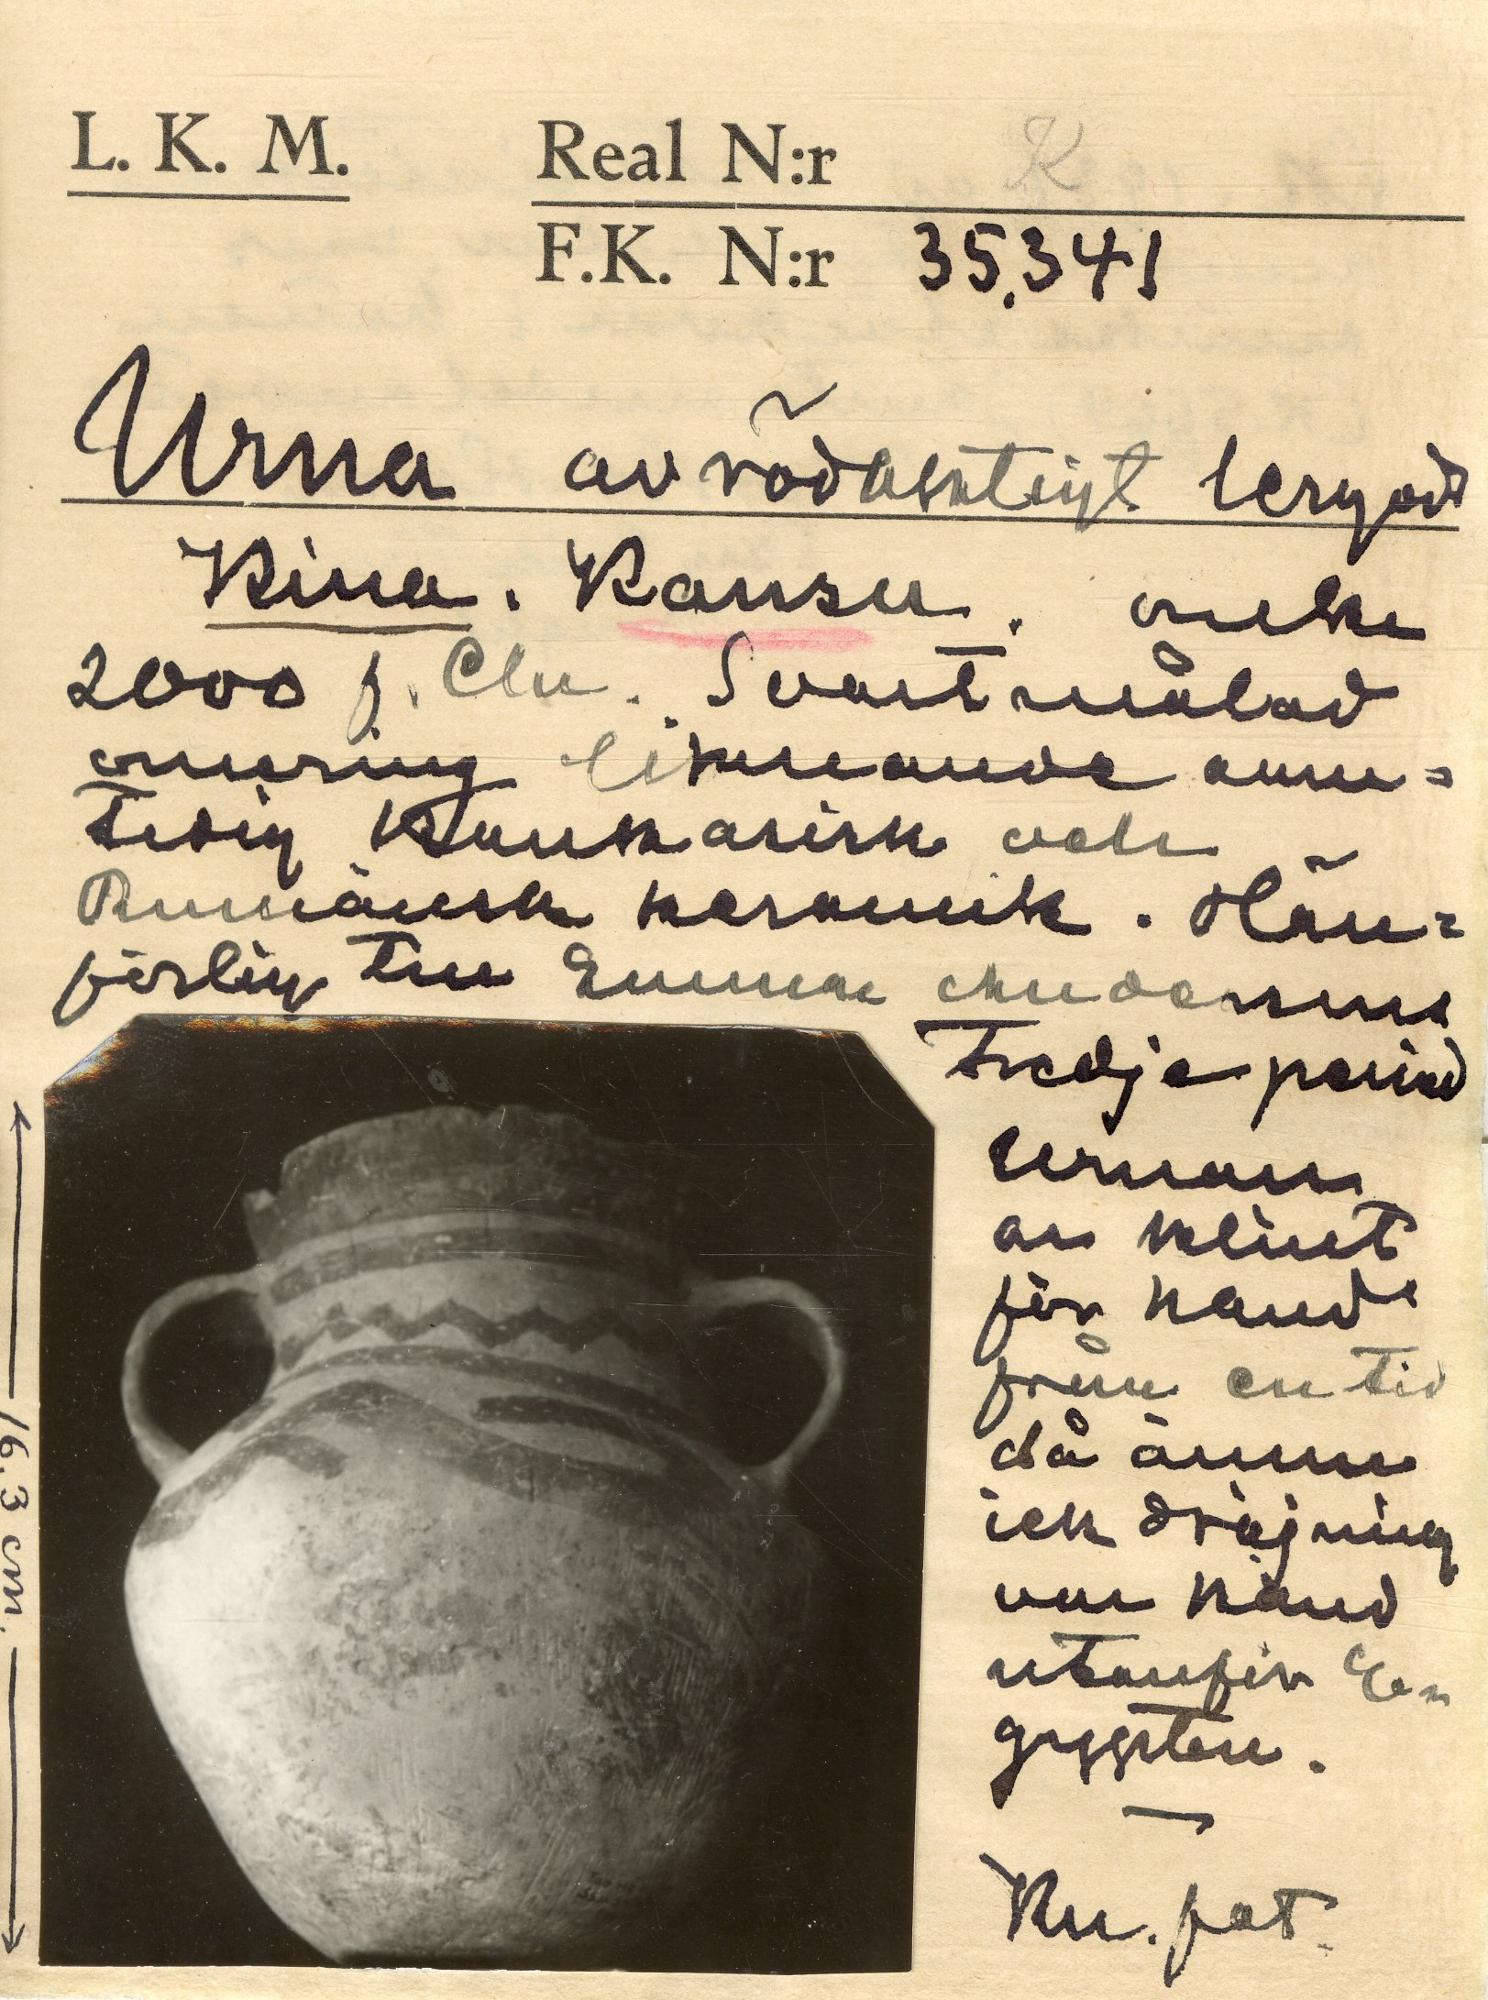 L. K. M.
Real N:r K
F.K. N:r 35,341
Urna av rödaktigt lergods
Kina. Kansu. omkr
2000 f. Chr. Svartmålad
ornering liknande sam=
tidig kaukasisk och
Rumänsk keramik. Hän=
förlig till
Tredje period
Urnan
är
för hand
från en tid
då ännu
ick dräjning
var känd
utanför E=
gypten.
Ku. fat.
16,3 cm.